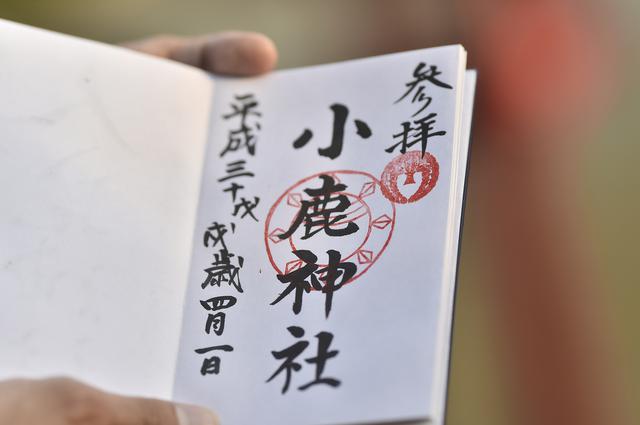 参拝
小鹿神社
平成三十戊戌歳四月一日